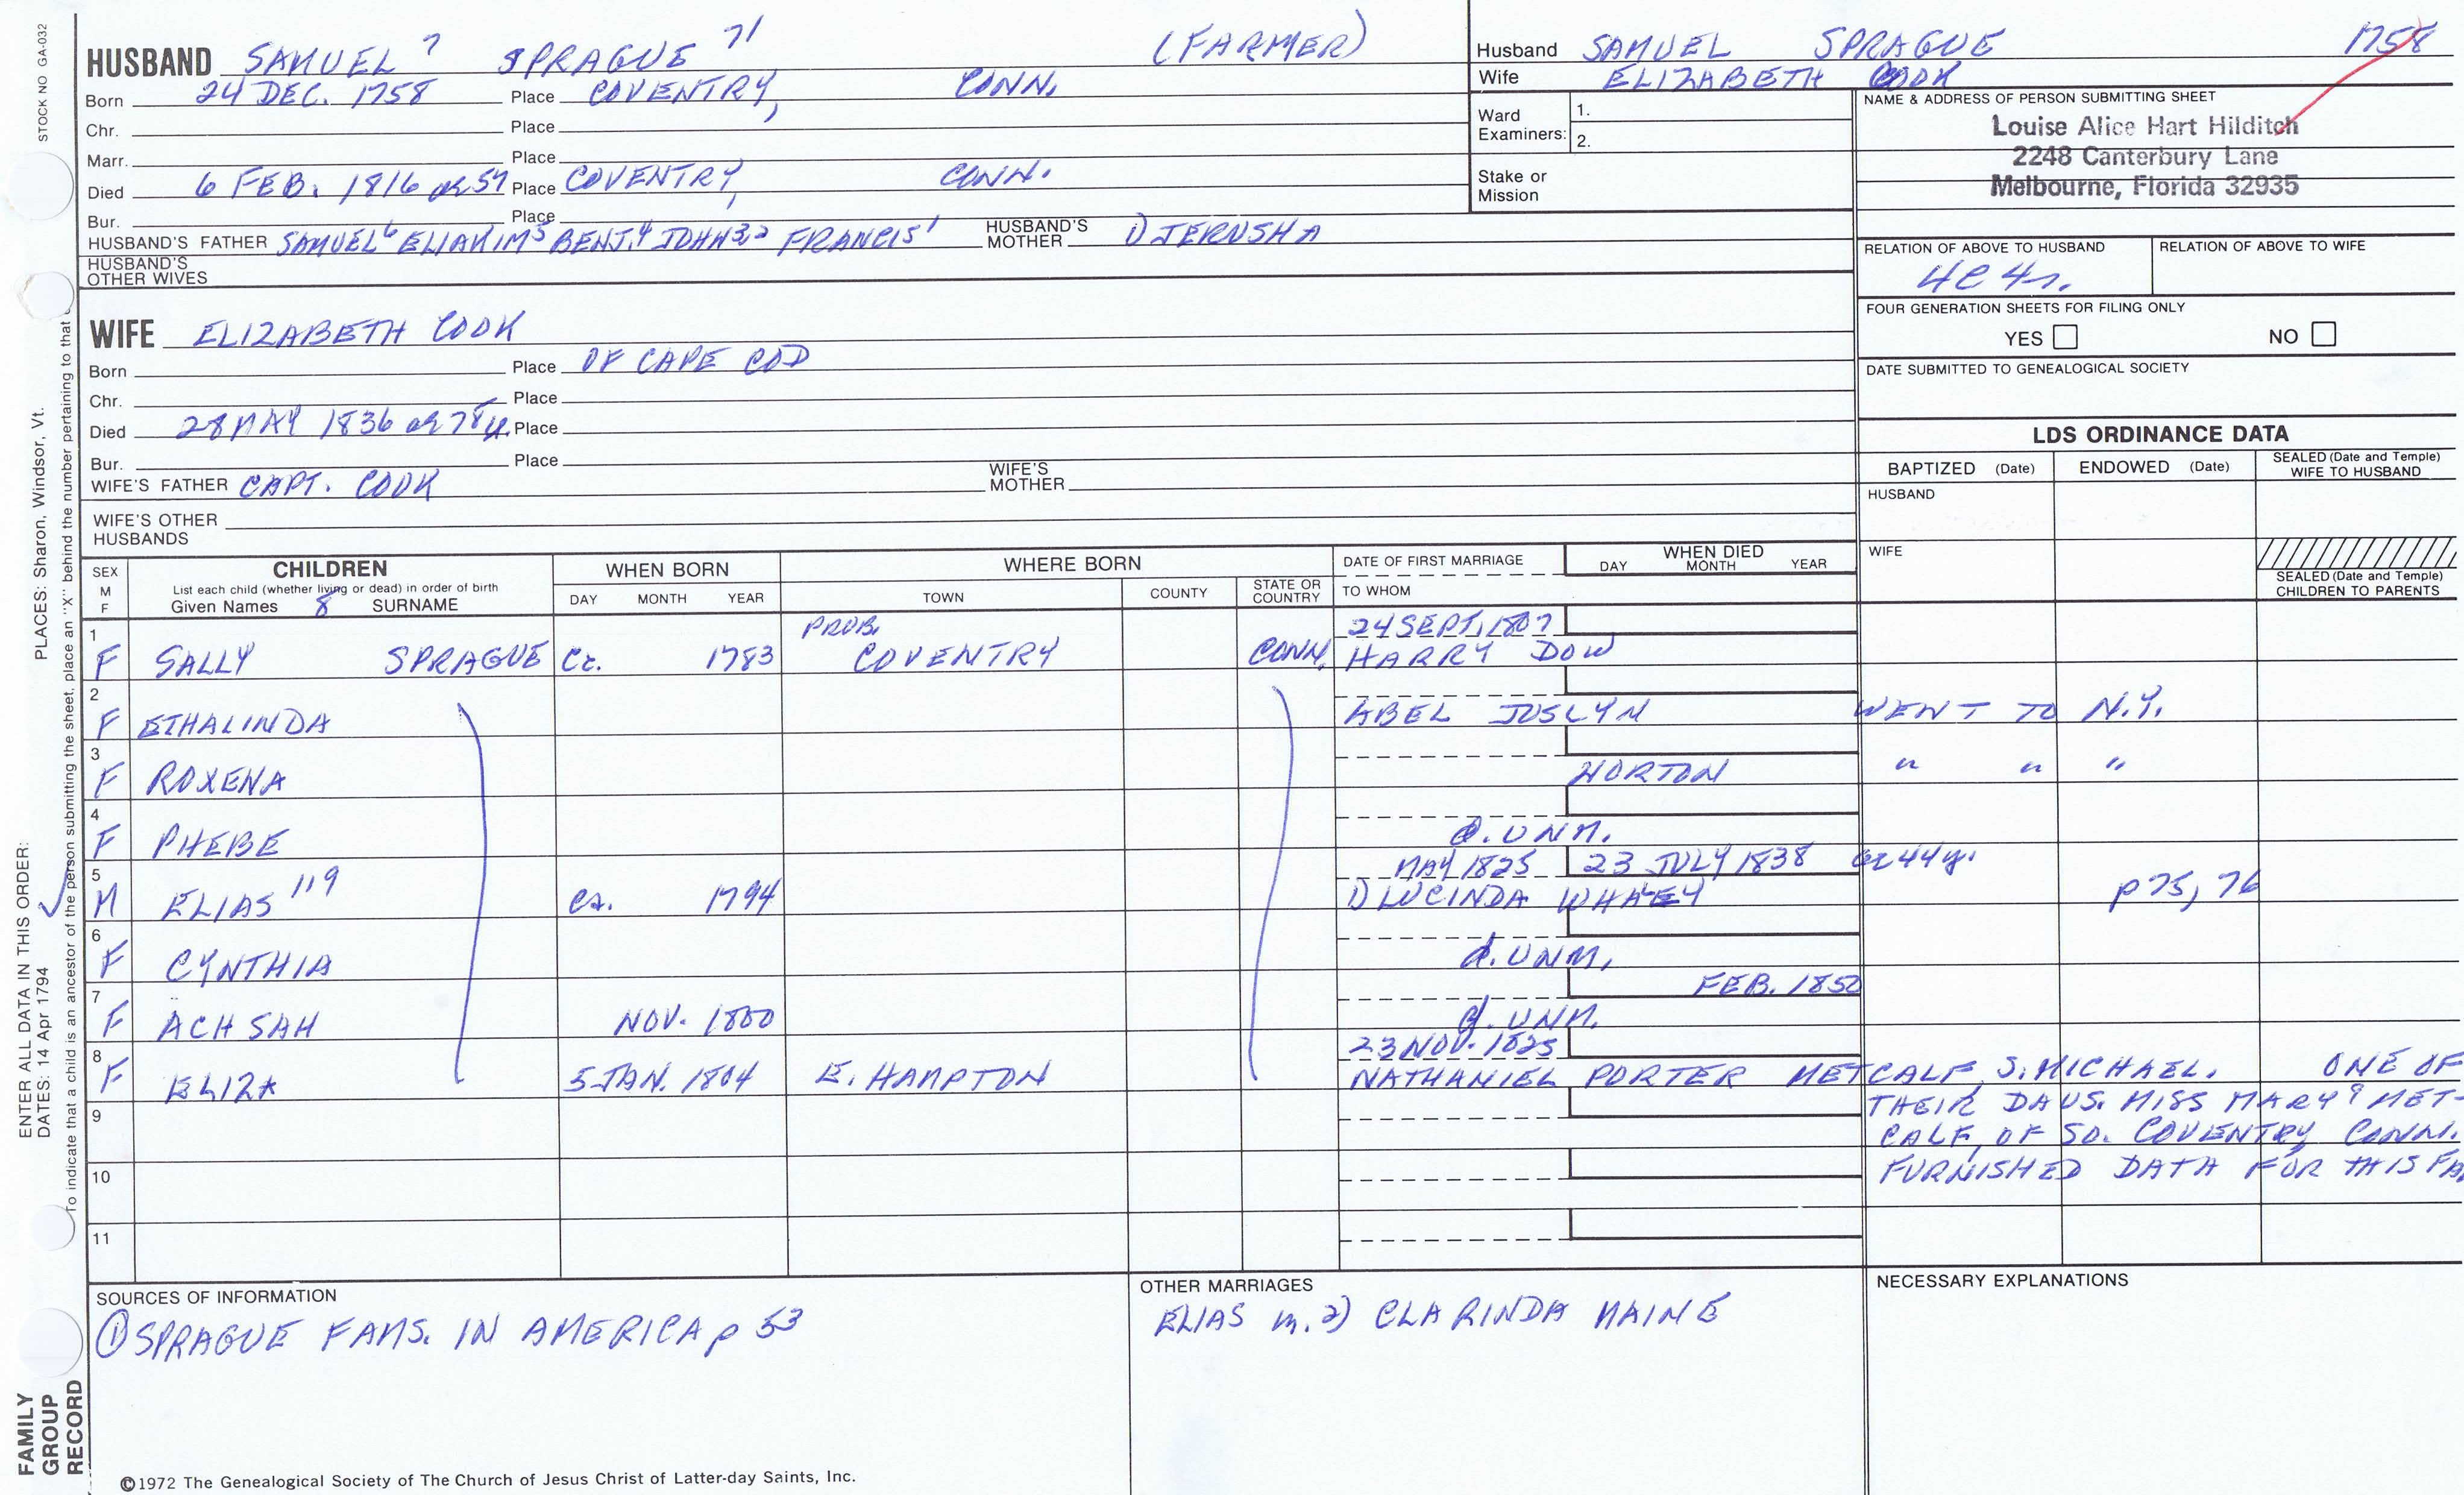 STOCK NO GA-032
HUSBAND SAMUEL 7 SPRAGUE 71 (FARMER)
Born 24 DEC. 1758 Place COVENTRY, CONN.
Chr. Place
Marr. Place
Died 6 FEB. 1816 ae 57 Place COVENTRY, CONN.
Bur. Place
HUSBAND'S FATHER SAMUEL6 ELIAKIM5 BENJ.4 JOHN3,2 FRANCIS1 HUSBAND'S MOTHER 1) JERUSHA
HUSBAND'S OTHER WIVES
Husband SAMUEL SPRAGUE 1758
Wife ELIZABETH COOK
Ward Examiners: 1.
2.
Stake or Mission
NAME & ADDRESS OF PERSON SUBMITTING SHEET
Louise Alice Hart Hilditch
2248 Canterbury Lane
Melbourne, Florida 32935
RELATION OF ABOVE TO HUSBAND RELATION OF ABOVE TO WIFE
4C4r.
FOUR GENERATION SHEETS FOR FILING ONLY
YES NO
DATE SUBMITTED TO GENEALOGICAL SOCIETY
WIFE ELIZABETH COOK
Born Place OF CAPE COD
Chr. Place
Died 28 MAY 1836 ae 78 y. Place
Bur. Place
WIFE'S FATHER CAPT. COOK WIFE'S MOTHER
WIFE'S OTHER HUSBANDS
LDS ORDINANCE DATA
BAPTIZED (Date) ENDOWED (Date) SEALED (Date and Temple) WIFE TO HUSBAND
HUSBAND
WIFE
SEALED (Date and Temple) CHILDREN TO PARENTS
SEX M F
CHILDREN
List each child (whether living or dead) in order of birth
Given Names 8 SURNAME
WHEN BORN
DAY MONTH YEAR
WHERE BORN
TOWN COUNTY STATE OR COUNTRY
DATE OF FIRST MARRIAGE
TO WHOM
WHEN DIED
DAY MONTH YEAR
PROB. 24 SEPT. 1807
1 F SALLY SPRAGUE Ca. 1783 COVENTRY CONN. HARRY DOW
2 F ETHALINDA ABEL JOSLYN WENT TO N.Y.
3 F ROXENA HORTON " " "
4 F PHEBE d. UNM.
MAY 1825 23 JULY 1838 ae 44y.
5 M ELIAS 119 Ca. 1794 1) LUCINDA WHALEY p 75, 76
6 F CYNTHIA d. UNM.
FEB. 1850
7 F ACHSAH NOV. 1800 d. UNM.
23 NOV. 1825
8 F ELIZA 5 JAN. 1804 E. HAMPTON NATHANIEL PORTER METCALF, S. MICHAEL. ONE OF
9 THEIR DAUS. MISS MARY9 MET-
CALF, OF SO. COVENTRY CONN.
10 FURNISHED DATA FOR THIS FA
11
SOURCES OF INFORMATION
① SPRAGUE FAMS. IN AMERICA p 53
OTHER MARRIAGES
ELIAS m. 2) CLARINDA MAINE
NECESSARY EXPLANATIONS
ENTER ALL DATA IN THIS ORDER:
DATES: 14 Apr 1794 PLACES: Sharon, Windsor, Vt.
To indicate that a child is an ancestor of the person submitting the sheet, place an "X" behind the number pertaining to that
FAMILY GROUP RECORD
©1972 The Genealogical Society of The Church of Jesus Christ of Latter-day Saints, Inc.